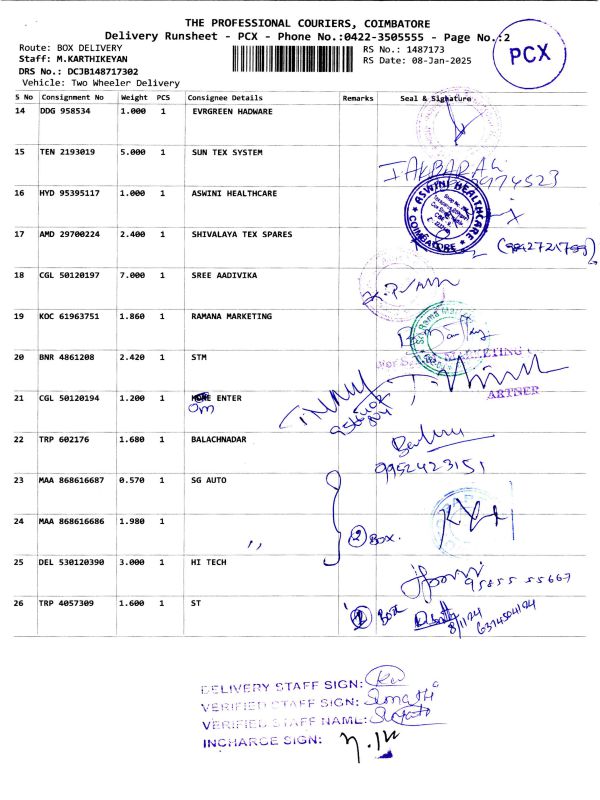 THE PROFESSIONAL COURIERS, COIMBATORE
Delivery Runsheet - PCX - Phone No.:0422-3505555 - Page No.:2
Route: BOX DELIVERY
RS No.: 1487173
PCX
Staff: M.KARTHIKEYAN
RS Date: 08-Jan-2025
DRS No.: DCJB148717302
Vehicle: Two Wheeler Delivery
S No Consignment No Weight PCS Consignee Details Remarks Seal & Signature
14 DDG 958534 1.000 1 EVRGREEN HADWARE
15 TEN 2193019 5.000 1 SUN TEX SYSTEM
16 HYD 95395117 1.000 1 ASWINI HEALTHCARE
ASWINI HEALTHCARE
COIMBATORE
17 AMD 29700224 2.400 1 SHIVALAYA TEX SPARES
18 CGL 50120197 7.000 1 SREE AADIVIKA
19 KOC 61963751 1.860 1 RAMANA MARKETING
20 BNR 4861208 2.420 1 STM
MARKETING
ARTNER
21 CGL 50120194 1.200 1 HOME ENTER
Om
22 TRP 602176 1.680 1 BALACHNADAR
9952423151
23 MAA 868616687 0.570 1 SG AUTO
24 MAA 868616686 1.980 1 ,,
2 BOX.
25 DEL 530120390 3.000 1 HI TECH
95855 55667
26 TRP 4057309 1.600 1 ST
Box
8/1/24
6374504194
DELIVERY STAFF SIGN:
VERIFIED STAFF SIGN:
VERIFIED STAFF NAME:
INCHARGE SIGN: